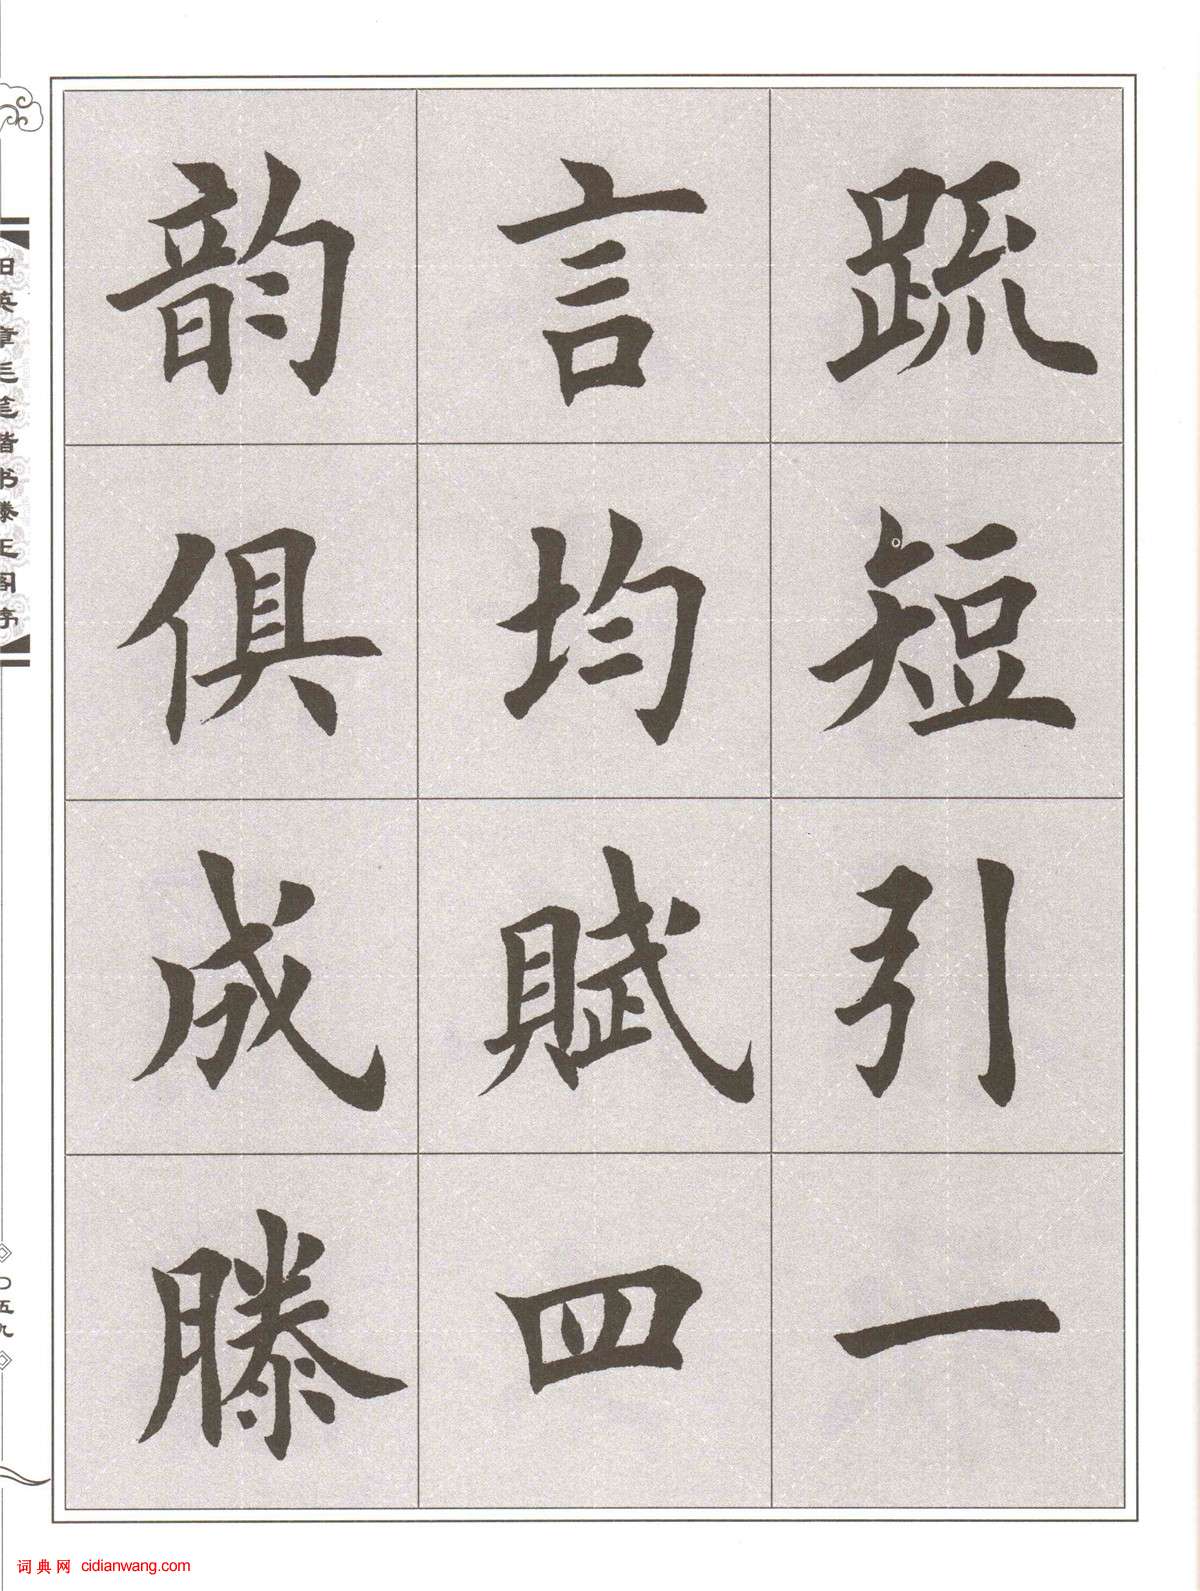 疏短引一
言均賦四
韵俱成滕
田英章毛笔楷书滕王阁序
〇五九
词典网 cidianwang.com